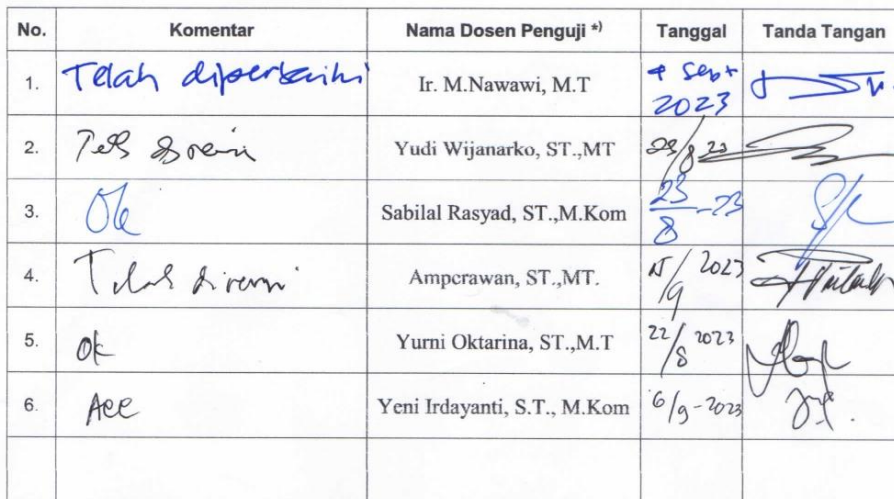 No. Komentar Nama Dosen Penguji *) Tanggal Tanda Tangan
1. Telah diperbaiki Ir. M.Nawawi, M.T 4 Sept 2023
2. Yudi Wijanarko, ST.,MT 23/8 23
3. Ok Sabilal Rasyad, ST.,M.Kom 23/8-23
4. Telah direvisi Amperawan, ST.,MT. /9 2023
5. Ok Yurni Oktarina, ST.,M.T 22/8 2023
6. Acc Yeni Irdayanti, S.T., M.Kom 6/9-2023